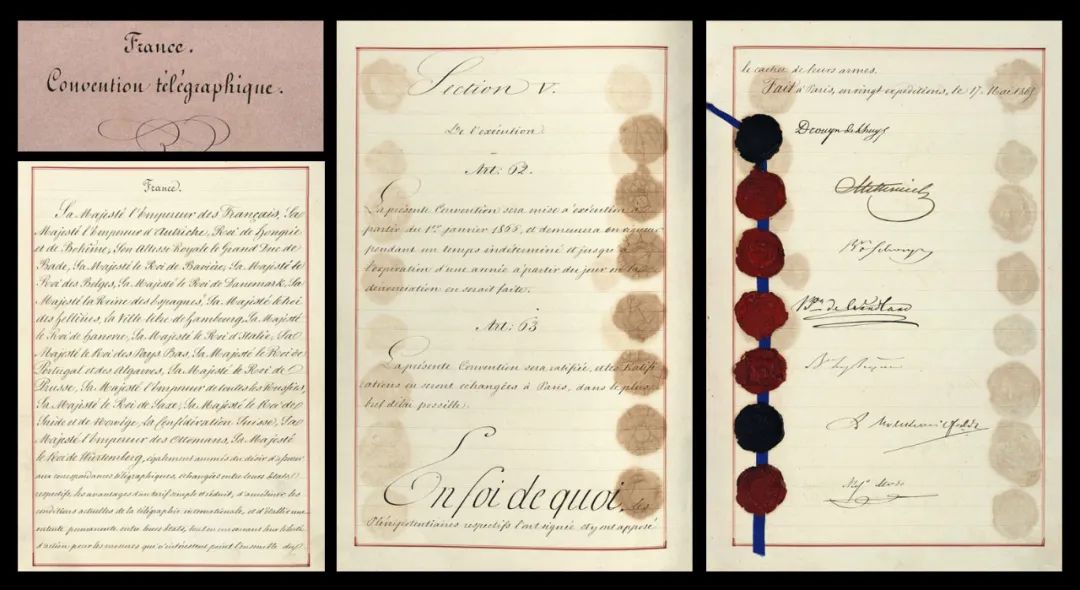 France.
Convention télégraphique.
France.
Sa Majesté l'Empereur des Français, Sa
Majesté l'Empereur d'Autriche, Roi de Hongrie
et de Bohême, Son Altesse Royale le Grand Duc de
Bade, Sa Majesté le Roi de Bavière, Sa Majesté le
Roi des Belges, Sa Majesté le Roi de Danemark, Sa
Majesté la Reine des Espagnes, Sa Majesté le Roi
des Hellènes, la Ville libre de Hambourg, Sa Majesté
le Roi de Hanovre, Sa Majesté le Roi d'Italie, Sa
Majesté le Roi des Pays Bas, Sa Majesté le Roi de
Portugal et des Algarves, Sa Majesté le Roi de
Prusse, Sa Majesté l'Empereur de toutes les Russies,
Sa Majesté le Roi de Saxe, Sa Majesté le Roi de
Suède et de Norwège, la Confédération Suisse, Sa
Majesté l'Empereur des Ottomans, Sa Majesté
le Roi de Würtemberg, également animés du désir d'assurer
aux correspondances télégraphiques, échangées entre leurs États
respectifs, les avantages d'un tarif simple et réduit, d'améliorer les
conditions actuelles de la télégraphie internationale, et d'établir une
entente permanente entre leurs États, tout en conservant leur liberté
d'action pour les mesures qui n'intéressent point l'ensemble du
Section V.
De l'exécution
Art: 62.
La présente Convention sera mise à exécution à
partir du 1er janvier 1866, et demeurera en vigueur
pendant un temps indéterminé et jusqu'à
l'expiration d'une année à partir du jour où la
dénonciation en serait faite.
Art: 63
La présente Convention sera ratifiée, et les Ratifi
cations en seront échangées à Paris, dans le plus
bref délai possible.
En foi de quoi, les
Plénipotentiaires respectifs l'ont signée et y ont apposé
le cachet de leurs armes.
Fait à Paris, en vingt expéditions, le 17 Mai 1865
Drouyn de Lhuys
Metternich